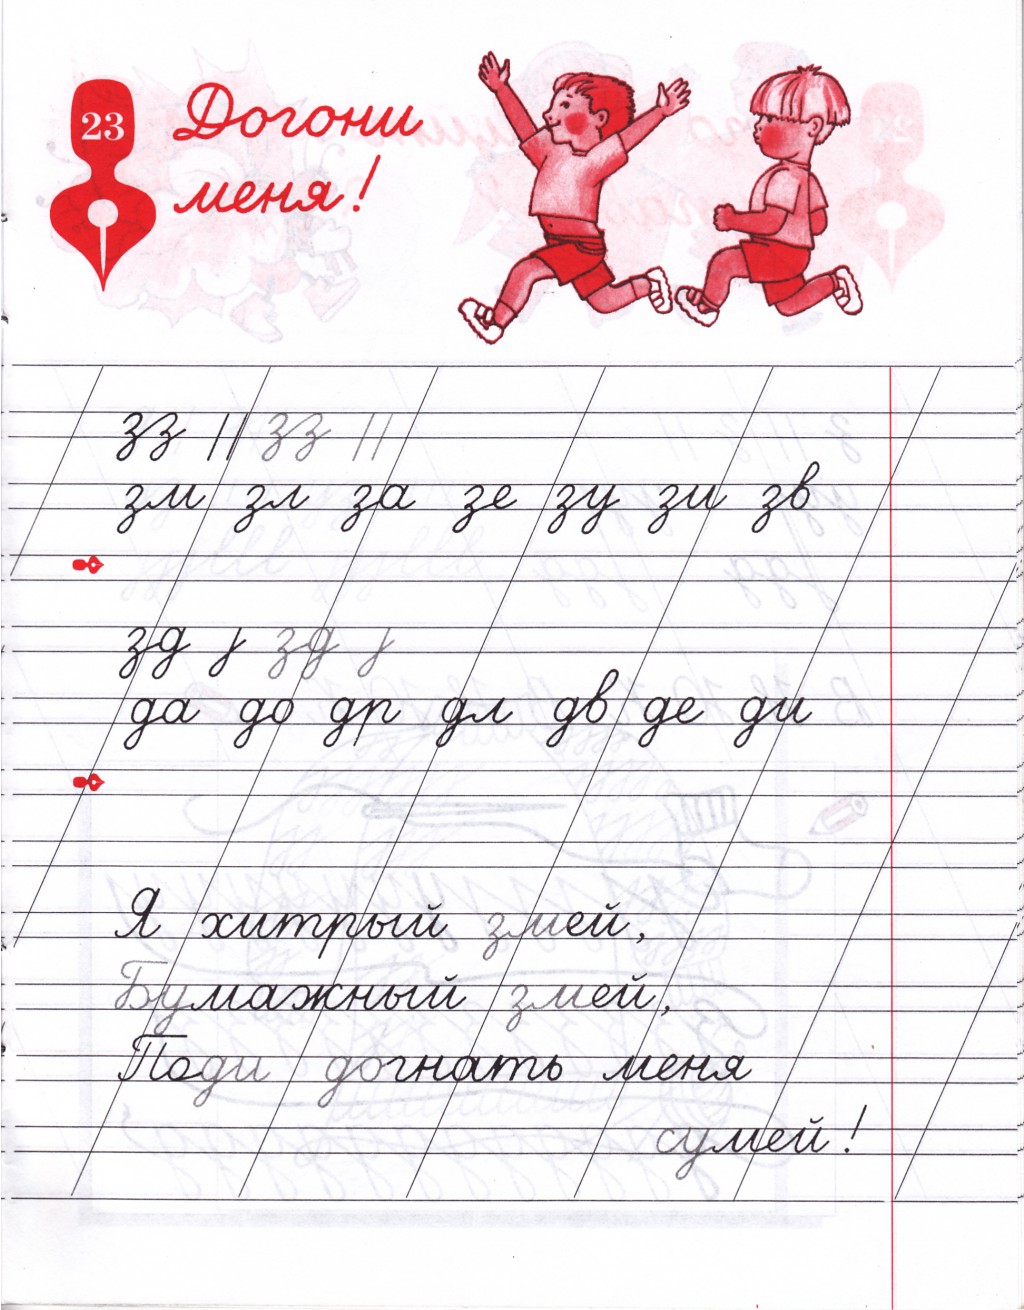 23
Догони
меня!
зз зз
зм зл за зе зу зи зв
зд зд
да до др дл дв де ди
Я хитрый змей,
Бумажный змей,
Поди догнать меня
сумей!